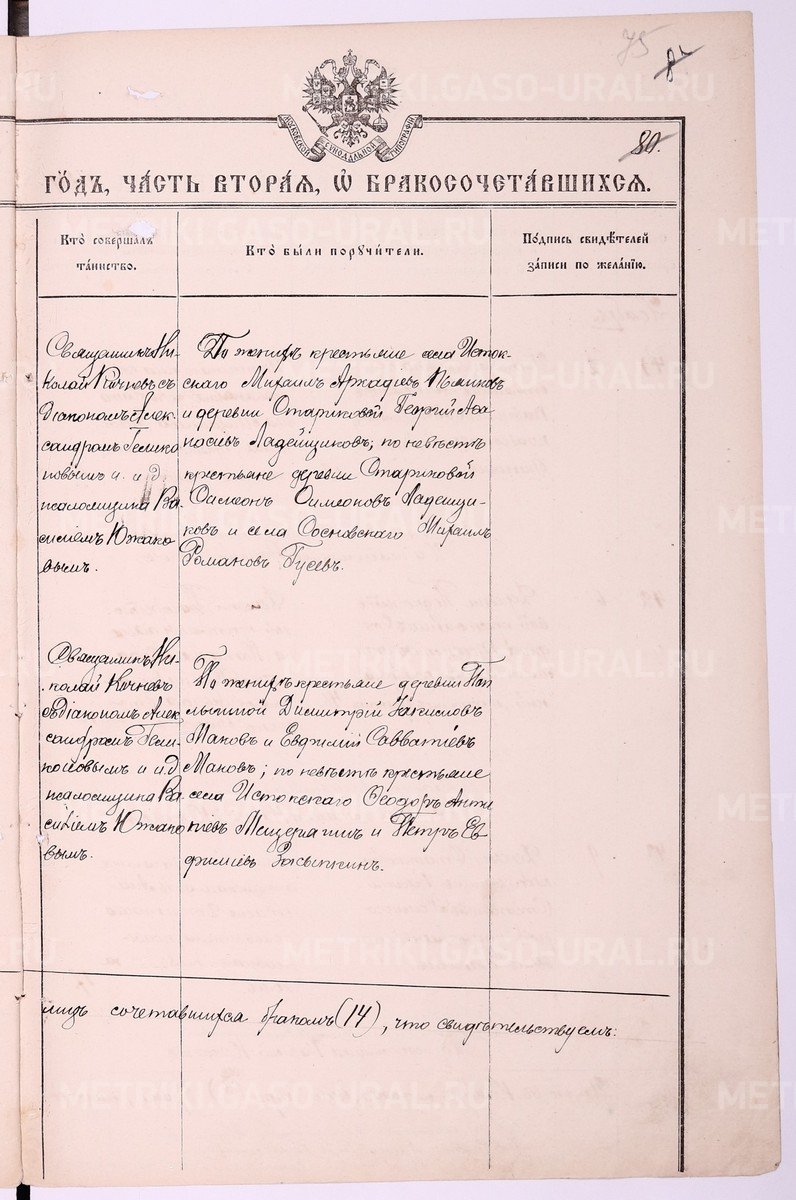 75
82
80.
МОСКОВСКОЙ СѴНОДАЛЬНОЙ ТИПОГРАФІИ
ГО́ДЪ, ЧА́СТЬ ВТОРА́Я, Ѽ БРАКОСОЧЕТА́ВШИХСЯ.
Кто̀ соверша́лъ
та́инство.
Кто̀ бы́ли пору́чители.
По́дпись свидѣ́телей
за́писи по жела́нїю.
Священникъ Ни-
колай Кочневъ съ
діакономъ Алек-
сандромъ Гелико
новымъ и и. д.
псаломщика Ва
силіемъ Южако
вымъ.
По женихѣ крестьяне села Исток-
скаго Михаилъ Аркадіевъ
и деревни Стариковой Георгій Аѳа
насіевъ Ладейщиковъ; по невѣстѣ
крестьяне деревни Стариковой
Симеонъ Симеоновъ Ладейщи-
ковъ и села Сосновскаго Михаилъ
Романовъ Гусевъ.
Священникъ Ни-
колай Кочневъ
съ діакономъ Алек
сандромъ Гели-
коновымъ и и.д
псаломщика Ва
силіемъ Южако
вымъ.
По женихѣ крестьяне деревни
Димитрій
Маковъ и Евфимій Савватіевъ
Маковъ; по невѣстѣ крестьяне
села Истокскаго Ѳеодоръ Анти
піевъ Мещерягинъ и Петръ Ев
фиміевъ Засыпкинъ.
лицъ сочетавшихся бракомъ (14), что свидѣтельствуемъ:
METRIKI.GASO-URAL.RU